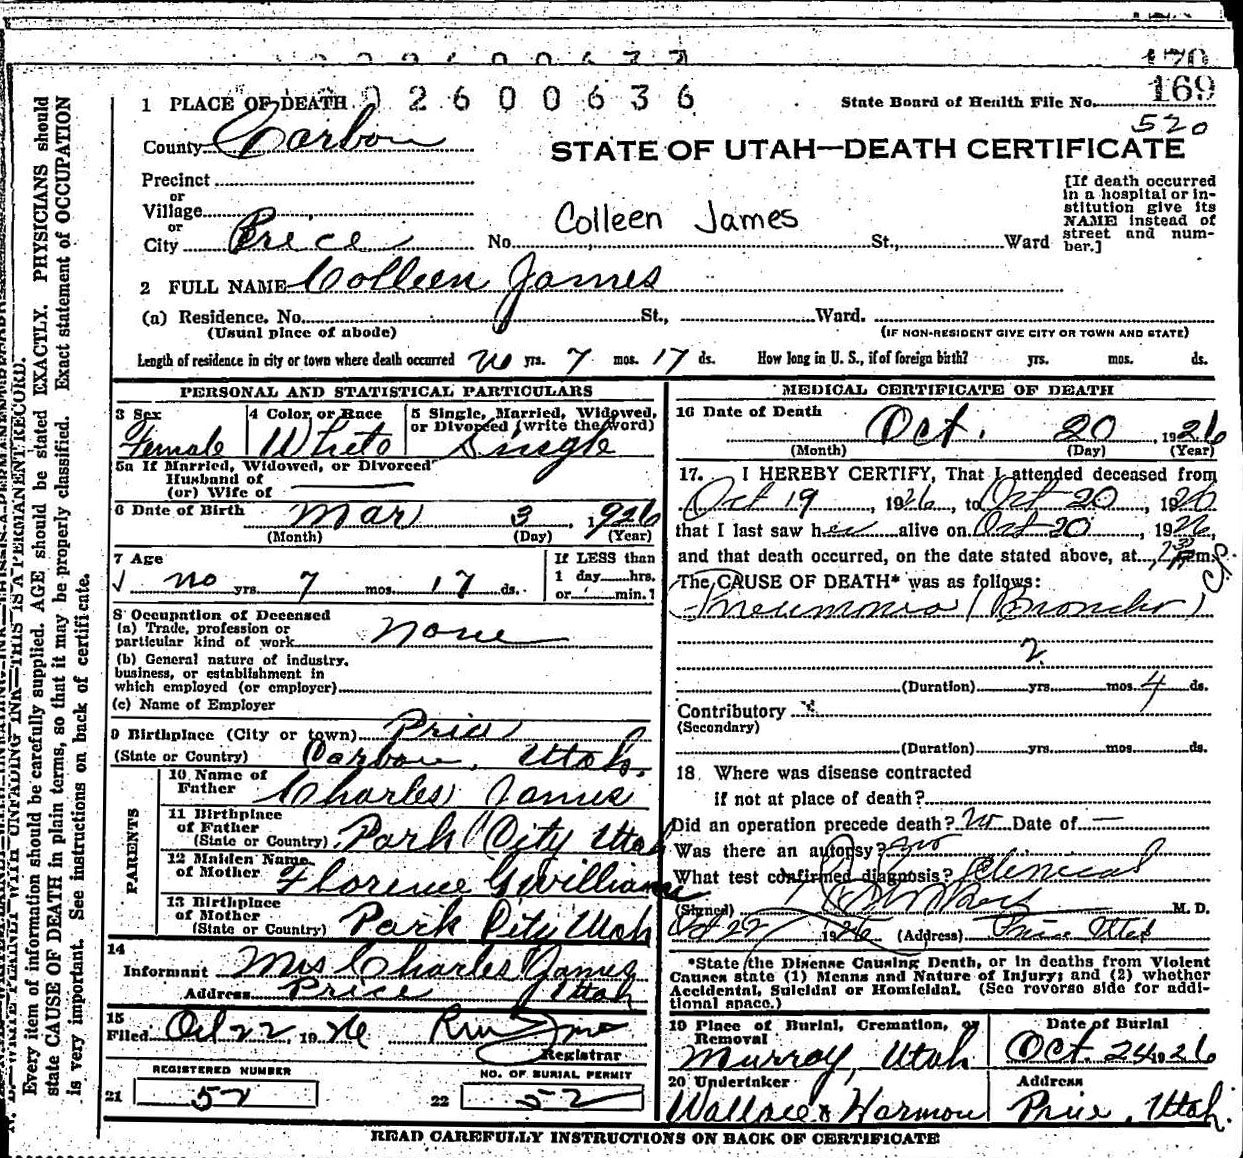 170
169
520
1 PLACE OF DEATH 0 2 6 0 0 6 3 6 State Board of Health File No.
County Carbon
STATE OF UTAH—DEATH CERTIFICATE
Precinct
or
Village
or
City Price No. St., Ward
Colleen James
[If death occurred
in a hospital or in-
stitution give its
NAME instead of
street and num-
ber.]
2 FULL NAME Colleen James
(a) Residence. No. St., Ward.
(Usual place of abode) (IF NON-RESIDENT GIVE CITY OR TOWN AND STATE)
Length of residence in city or town where death occurred no yrs. 7 mos. 17 ds. How long in U. S., if of foreign birth? yrs. mos. ds.
PERSONAL AND STATISTICAL PARTICULARS
3 Sex
Female
4 Color or Race
White
5 Single, Married, Widowed,
or Divorced (write the word)
Single
5a If Married, Widowed, or Divorced
Husband of
(or) Wife of
6 Date of Birth Mar 3, 1926
(Month) (Day) (Year)
7 Age
no yrs. 7 mos. 17 ds.
If LESS than
1 day hrs.
or min.?
8 Occupation of Deceased
(a) Trade, profession or
particular kind of work none
(b) General nature of industry,
business, or establishment in
which employed (or employer)
(c) Name of Employer
9 Birthplace (City or town) Price
(State or Country) Carbon, Utah.
PARENTS
10 Name of
Father Charles James
11 Birthplace
of Father
(State or Country) Park City Utah
12 Maiden Name
of Mother Florence Gwilliam
13 Birthplace
of Mother
(State or Country) Park City Utah
14
Informant Mrs Charles James
Address Price Utah
15
Filed Oct 22, 1926
Registrar
REGISTERED NUMBER
21 52
NO. OF BURIAL PERMIT
22 52
MEDICAL CERTIFICATE OF DEATH
16 Date of Death
Oct. 20, 1926
(Month) (Day) (Year)
17. I HEREBY CERTIFY, That I attended deceased from
Oct 19, 1926, to Oct 20, 1926
that I last saw her alive on Oct 20, 1926,
and that death occurred, on the date stated above, at m.
The CAUSE OF DEATH* was as follows:
Pneumonia (Broncho)
2
(Duration) yrs. mos. 4 ds.
Contributory
(Secondary)
(Duration) yrs. mos. ds.
18 Where was disease contracted
if not at place of death?
Did an operation precede death? No Date of —
Was there an autopsy? No
What test confirmed diagnosis? Clinical
(Signed) M. D.
Oct 22 1926 (Address) Price Utah
*State the Disease Causing Death, or in deaths from Violent
Causes state (1) Means and Nature of Injury; and (2) whether
Accidental, Suicidal or Homicidal. (See reverse side for addi-
tional space.)
19 Place of Burial, Cremation, or
Removal
Murray, Utah
Date of Burial
Oct. 24 1926
20 Undertaker
Wallace & Harmon
Address
Price, Utah.
READ CAREFULLY INSTRUCTIONS ON BACK OF CERTIFICATE
Every item of information should be carefully supplied. AGE should be stated EXACTLY. PHYSICIANS should
state CAUSE OF DEATH in plain terms, so that it may be properly classified. Exact statement of OCCUPATION
is very important. See instructions on back of certificate.